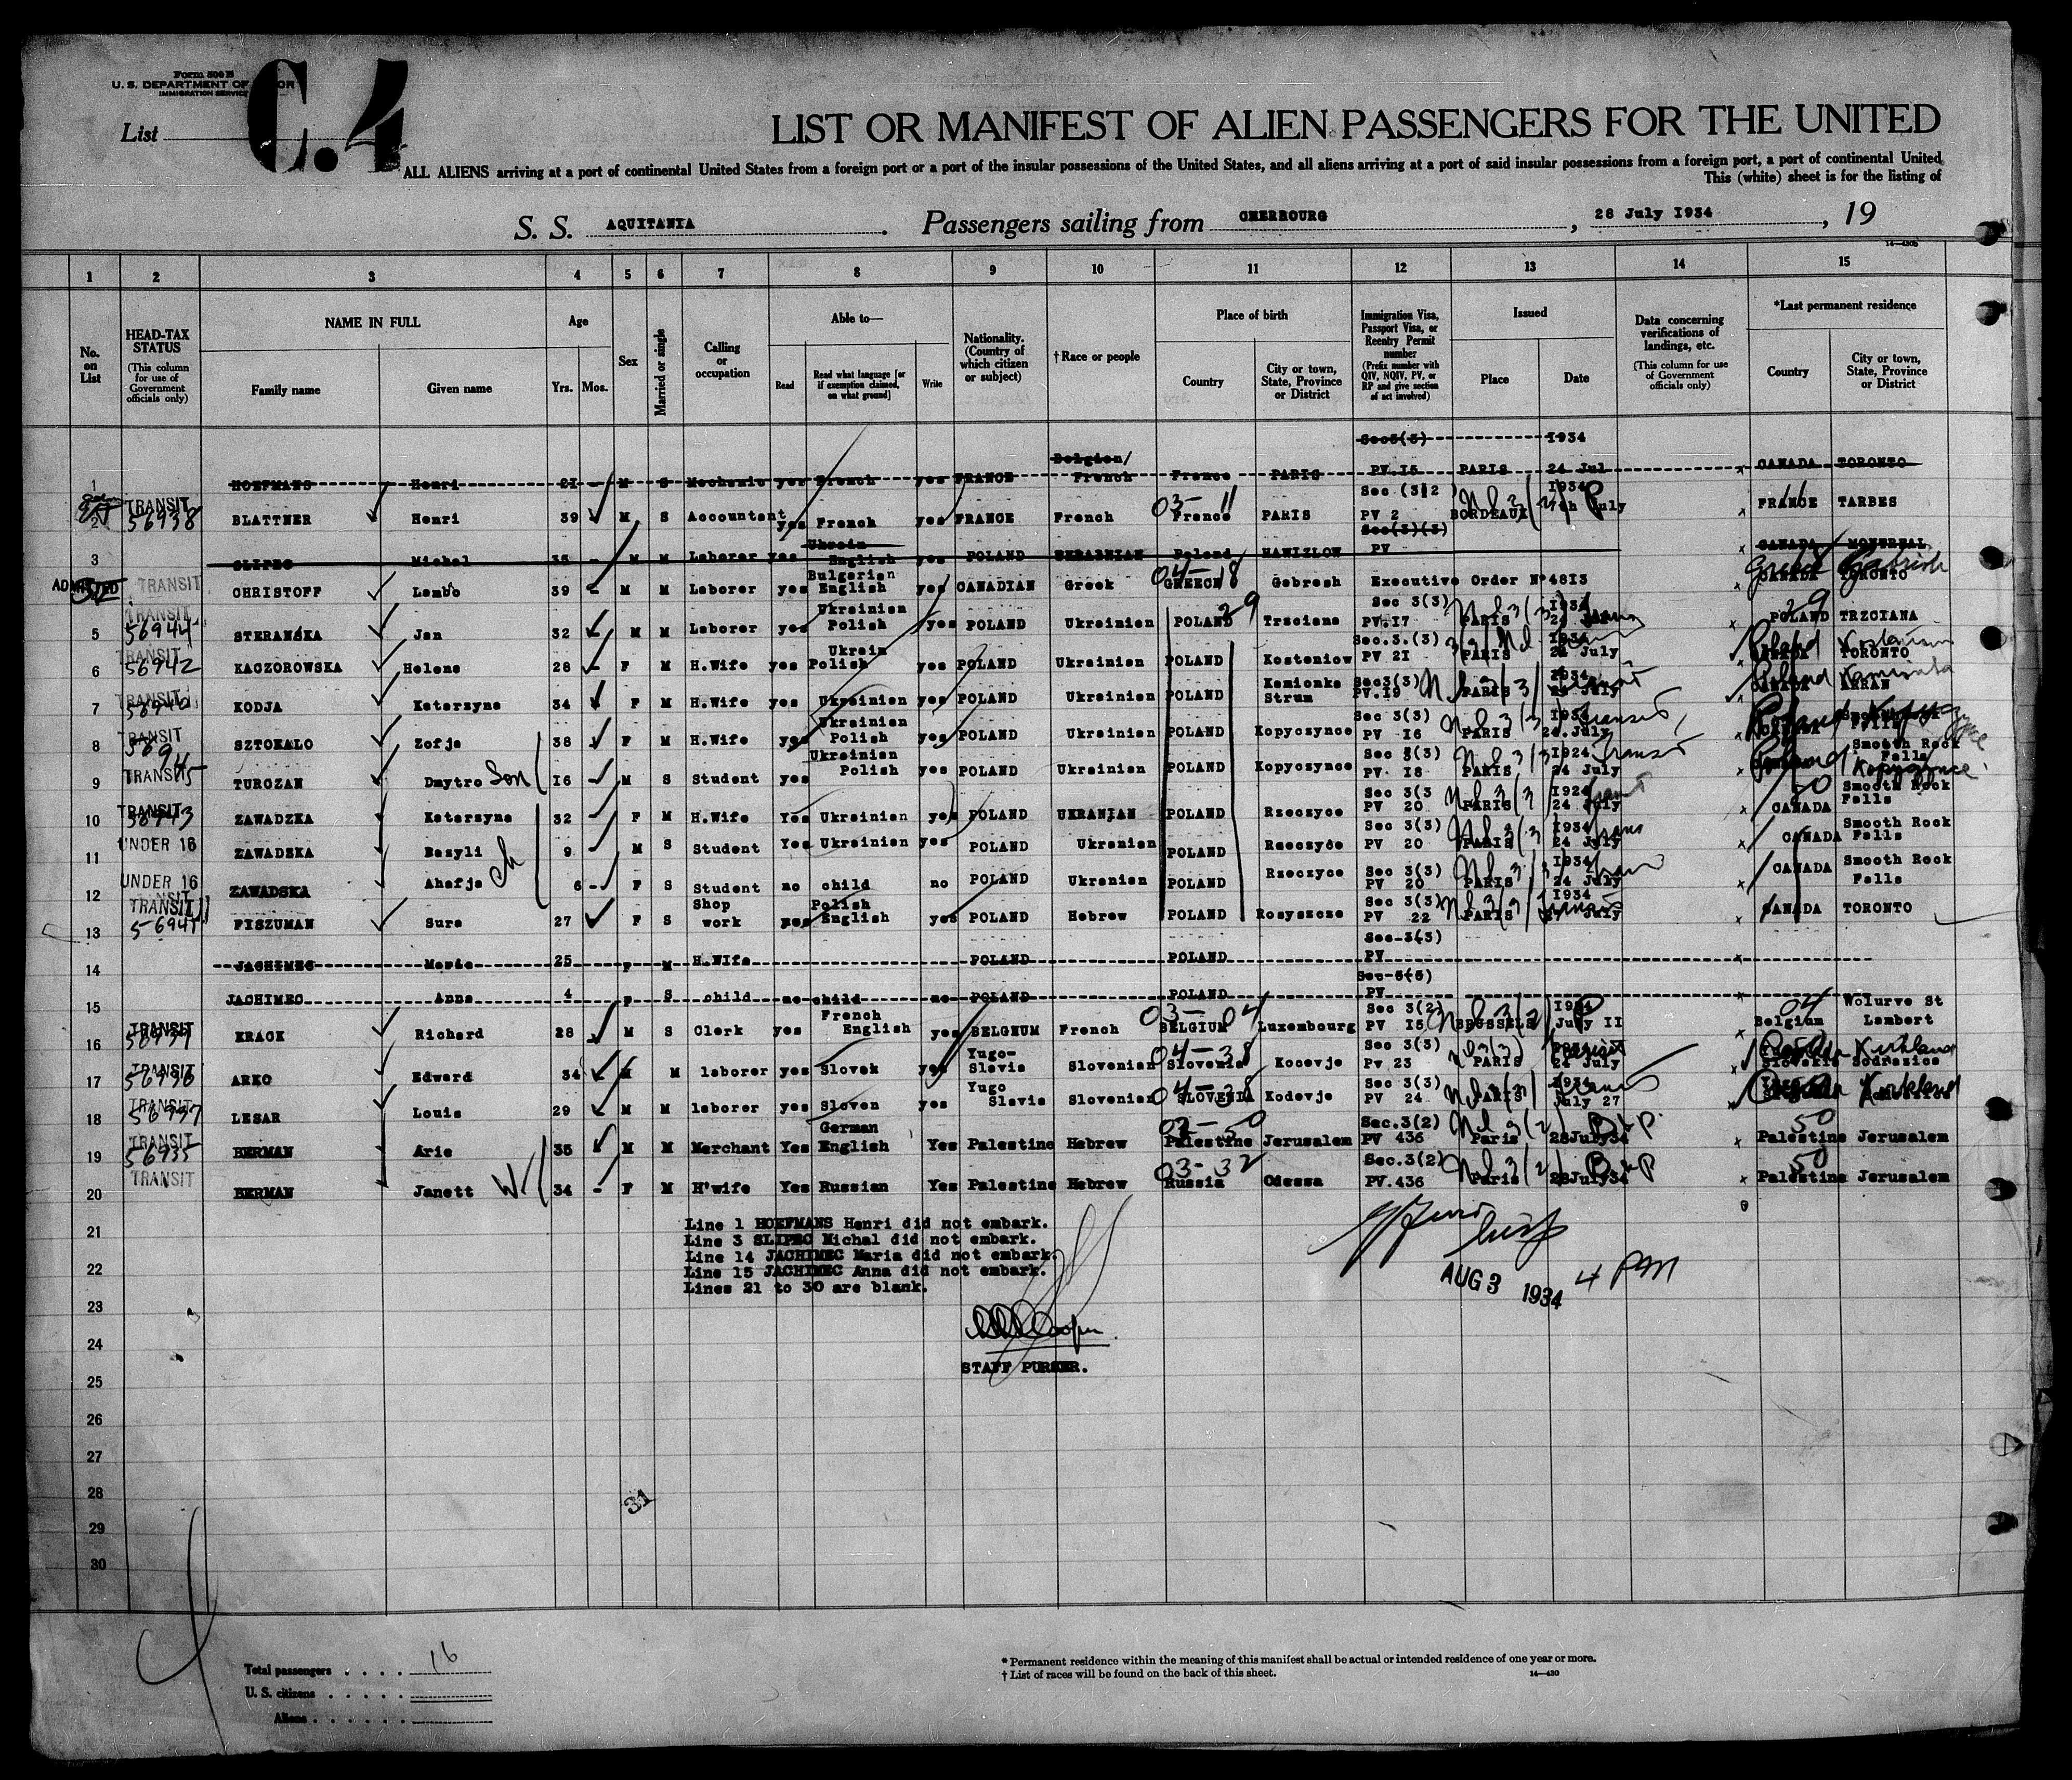 Form 500 B
U. S. DEPARTMENT OF
IMMIGRATION SERVICE
List
C.4
LIST OR MANIFEST OF ALIEN PASSENGERS FOR THE UNITED
ALL ALIENS arriving at a port of continental United States from a foreign port or a port of the insular possessions of the United States, and all aliens arriving at a port of said insular possessions from a foreign port, a port of continental United
This (white) sheet is for the listing of
S. S. AQUITANIA. Passengers sailing from CHERBOURG, 28 July 1934, 19
1 2 3 4 5 6 7 8 9 10 11 12 13 14 15
No. on List
HEAD-TAX STATUS (This column for use of Government officials only)
NAME IN FULL
Family name
Given name
Age
Yrs. Mos.
Sex
Married or single
Calling or occupation
Able to—
Read
Read what language [or if exemption claimed, on what ground]
Write
Nationality. (Country of which citizen or subject)
†Race or people
Place of birth
Country
City or town, State, Province or District
Immigration Visa, Passport Visa, or Reentry Permit number (Prefix number with QIV, NQIV, PV, or RP and give section of act involved)
Issued
Place
Date
Data concerning verifications of landings, etc. (This column for use of Government officials only)
*Last permanent residence
Country
City or town, State, Province or District
1 HOEFMANS Henri 21 - M S Mechanic yes French yes FRANCE Belgian/ French France PARIS Sec3(3) PV.15 PARIS 24 Jul 1934 CANADA TORONTO
2 TRANSIT 56938 BLATTNER Henri 39 M S Accountant yes French yes FRANCE French 03-11 France PARIS Sec (3)2 PV 2 BORDEAUX July 1934 FRANCE TARBES
3 SLIPEC Michal 35 - M M Laborer yes Ukrain English yes POLAND UKRARNIAN Poland HAWIZLOW Sec(3)(3) PV CANADA MONTREAL
ADMITTED TRANSIT CHRISTOFF Lambo 39 - M M Laborer yes Bulgarian English yes CANADIAN Greek 04-18 GREECE Gabresh Executive Order N°4813 CANADA TORONTO
5 TRANSIT 56944 STERANSKA Jan 32 - M M Laborer yes Ukrainian Polish yes POLAND Ukrainian POLAND 29 Trzciana Sec 3(3) PV.17 PARIS 1934 29 POLAND TRZCIANA
6 TRANSIT 56942 KACZOROWSKA Helena 28 - F M H.Wife yes Ukrain Polish yes POLAND Ukrainian POLAND Kosteniow Sec.3.(3) PV 21 PARIS July 1934 Poland TORONTO
7 TRANSIT KODJA Katarzyna 34 F M H.Wife yes Ukrainian yes POLAND Ukrainian POLAND Kamionka Strum Sec3(3) PV.19 PARIS July 1934 Poland ARRAN
8 TRANSIT SZTOKALO Zofja 38 F M H.Wife yes Ukrainian Polish yes POLAND Ukrainian POLAND Kopyczynce Sec 3(3) PV 16 PARIS 24.July 1934 transit Poland
9 TRANSIT 56945 TURCZAN Dmytro Son 16 M S Student yes Ukrainian Polish yes POLAND Ukrainian POLAND Kopyczynce Sec 3(3) PV. 18 PARIS 24 July 1924 transit Poland Smooth Rock Falls Kopyczynce
10 TRANSIT 56943 ZAWADZKA Katarzyna 32 F M H.Wife Yes Ukrainian yes POLAND UKRANIAN POLAND Rzeczyce Sec 3(3 PV 20 PARIS 24 July 1924 50 CANADA Smooth Rock Falls
11 UNDER 16 ZAWADSKA Bazyli ch 9 M S Student Yes Ukrainian yes POLAND Ukranian POLAND Rzeczyce Sec 3(3) PV 20 PARIS 24 July 1934 CANADA Smooth Rock Falls
12 UNDER 16 ZAWADSKA Ahafja 6 - F S Student no child no POLAND Ukranian POLAND Rzeczyce Sec 3(3) PV 20 PARIS 24 July 1934 CANADA Smooth Rock Falls
13 TRANSIT 56941 FYSZUMAN Sura 27 F S Shop work yes Polish English yes POLAND Hebrew POLAND Rosyszcze Sec 3(3) PV 22 PARIS July 1934 CANADA TORONTO
14 JACHIMEC Maria 25 F M H.Wife POLAND POLAND Sec-3(3) PV
15 JACHIMEC Anna 4 F S child no child no POLAND POLAND Sec-3(3) PV
16 TRANSIT 56939 KRACK Richard 28 M S Clerk yes French English yes BELGIUM French 03-04 BELGIUM Luxembourg Sec 3(2) PV 15 BRUSSELS July 11 1934 04 Belgium Wolurve St Lambert
17 TRANSIT 56936 ARKO Edward 34 M M laborer yes Slovak yes Yugo-Slavia Slovenian 04-38 Slovenia Kocevje Sec 3(3) Pv 23 PARIS 24 July Kirkland
18 TRANSIT 56937 LESAR Louis 29 M M laborer yes Sloven yes Yugo Slavia Slovenian 04-38 SLOVENIA Kodevje Sec 3(3) PV 24 PARIS July 27 1934 Kirkland
19 TRANSIT 56935 BERMAN Arie 35 M M Merchant Yes German English Yes Palestine Hebrew 02-50 Palestine Jerusalem Sec.3(2) PV 436 Paris 28July34 50 Palestine Jerusalem
20 TRANSIT BERMAN Janett W 34 - F M H'wife Yes Russian Yes Palestine Hebrew 03-32 Russia Odessa Sec.3(2) PV.436 Paris 28July34 50 Palestine Jerusalem
21 Line 1 HOEFMANS Henri did not embark.
Line 3 SLIPEC Michal did not embark.
Line 14 JACHIMEC Maria did not embark.
22 Line 15 JACHIMEC Anna did not embark.
Lines 21 to 30 are blank.
AUG 3 1934 4 PM
23
24
STAFF PURSER.
25
26
27
28
31
29
30
Total passengers . . . . 16
U. S. citizens . . . . .
Aliens . . . . . .
* Permanent residence within the meaning of this manifest shall be actual or intended residence of one year or more.
† List of races will be found on the back of this sheet.
14—430